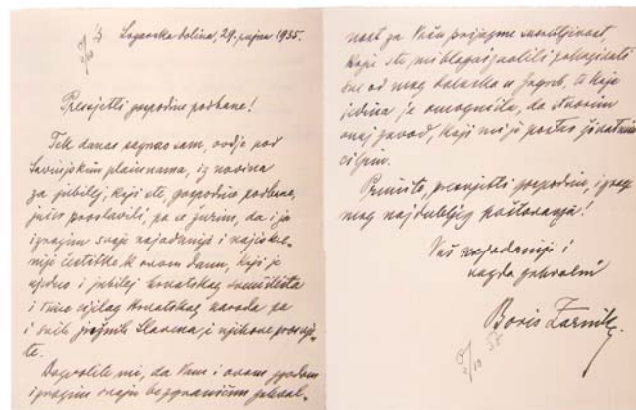 Logarska dolina, 29. rujna 1935.
Presvjetli gospodine podbane!
Tek danas saznao sam, ovdje pod
Savinjskim planinama, iz novina
za jubilej, koji ste, gospodine podbane,
jučer proslavili, pa se žurim, da i ja
izrazim svoje najodanije i najiskre-
nije čestitke k ovom danu, koji je
ujedno i jubilej hrvatskog sveučilišta
i time cijelog hrvatskog naroda pa
i svih južnih Slavena i njihove prosvje-
te.
Dozvolite mi, da Vam i ovom zgodom
izrazim svoju bezgraničnu zahval-
nost za Vašu prijaznu susretljivost,
koju ste mi blagoizvolili pokazivati
sve od mog dolaska u Zagreb, te koja
jedina je omogućila, da stvorim
onaj zavod, koji mi je postao životnim
ciljem.
Primite, presvjetli gospodine, izraze
mog najdubljeg poštovanja!
Vaš najodaniji i
vazda zahvalni
Boris Zarnik